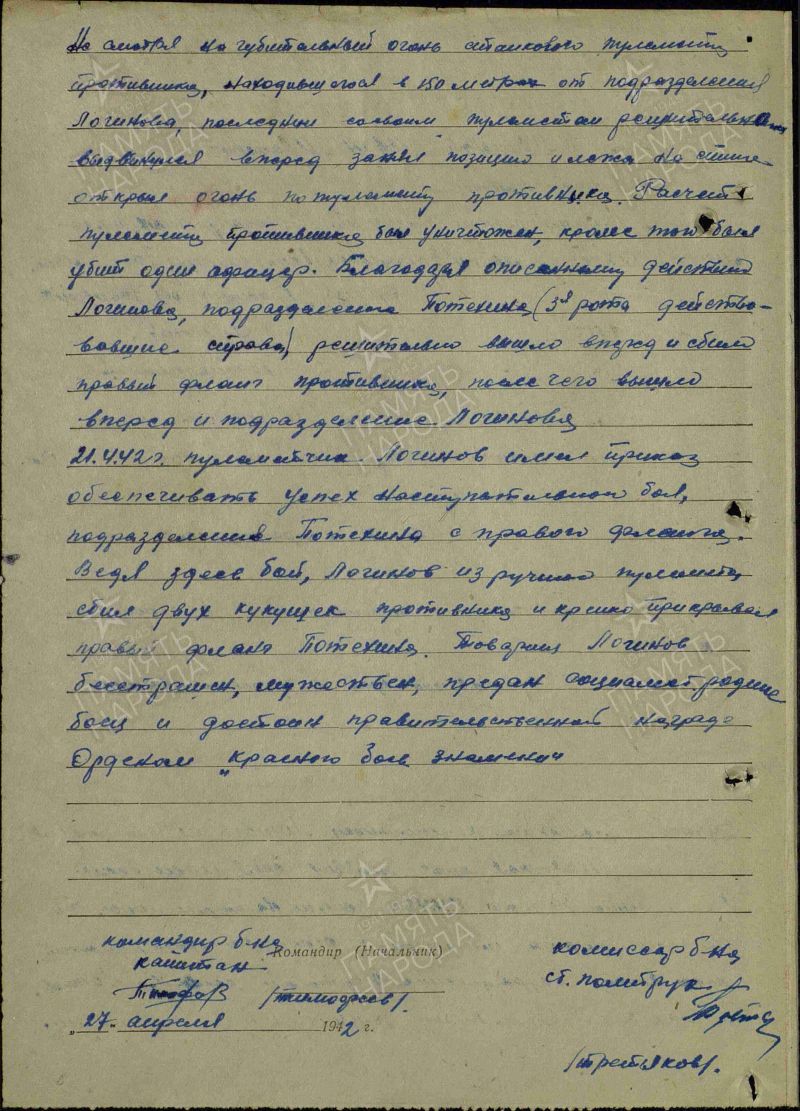 Не смотря на губительный огонь станкового пулемета
противника, находившегося в 150 метрах от подразделения
Логинова, последний со своим пулеметом решительно
выдвинулся вперед занял позицию и лежа на
открыл огонь по пулемету противника. Расчет
пулемета противника был уничтожен, кроме того был
убит один афицер. Благодаря описанному действию
Логинова, подразделение Потехина (3я рота действо-
вавшие справа) решительно вышло вперед и сбило
правый фланг противника, после чего вышло
вперед и подразделение Логинова
21.4.42 г. пулеметчик Логинов имел приказ
обеспечивать успех наступательного боя,
подразделения Потехина с правого фланга.
Ведя здесь бой, Логинов из ручного пулемета
сбил двух кукушек противника и крепко прикрывал
правый фланг Потехина. Товарищ Логинов
бесстрашен, мужествен, предан социалист. родине
боец и достоин правительственной награде
Орденом „красного боев знамени"
командир б-на
Командир (Начальник)
капитан
/тимофеев/.
„27" апреля 1942 г.
комиссар б-на
ст. политрук
/третьяков/.
ПАМЯТЬ НАРОДА